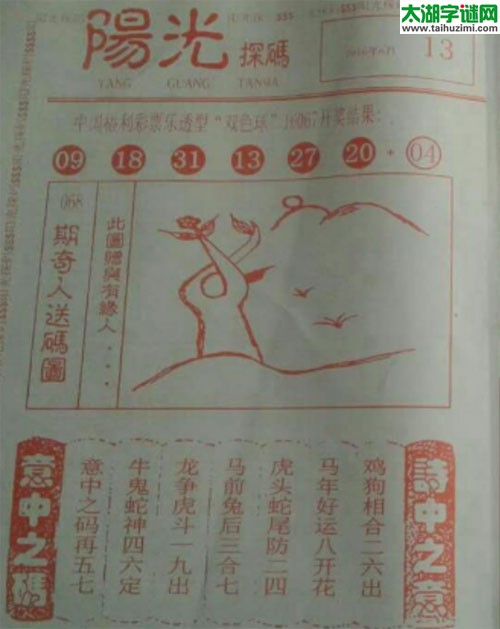 太湖字谜网
www.taihuzimi.com
陽光 探碼
YANG GUANG TANMA
13
中国福利彩票乐透型“双色球”J16067开奖结果：
09 18 31 13 27 20 · 04
068
期奇人送碼圖
此圖贈與有緣人....
詩中之意
鸡狗相合二六出
马年好运八开花
虎头蛇尾防二四
马前兔后三合七
龙争虎斗一九出
牛鬼蛇神四六定
意中之码再五七
意中之碼